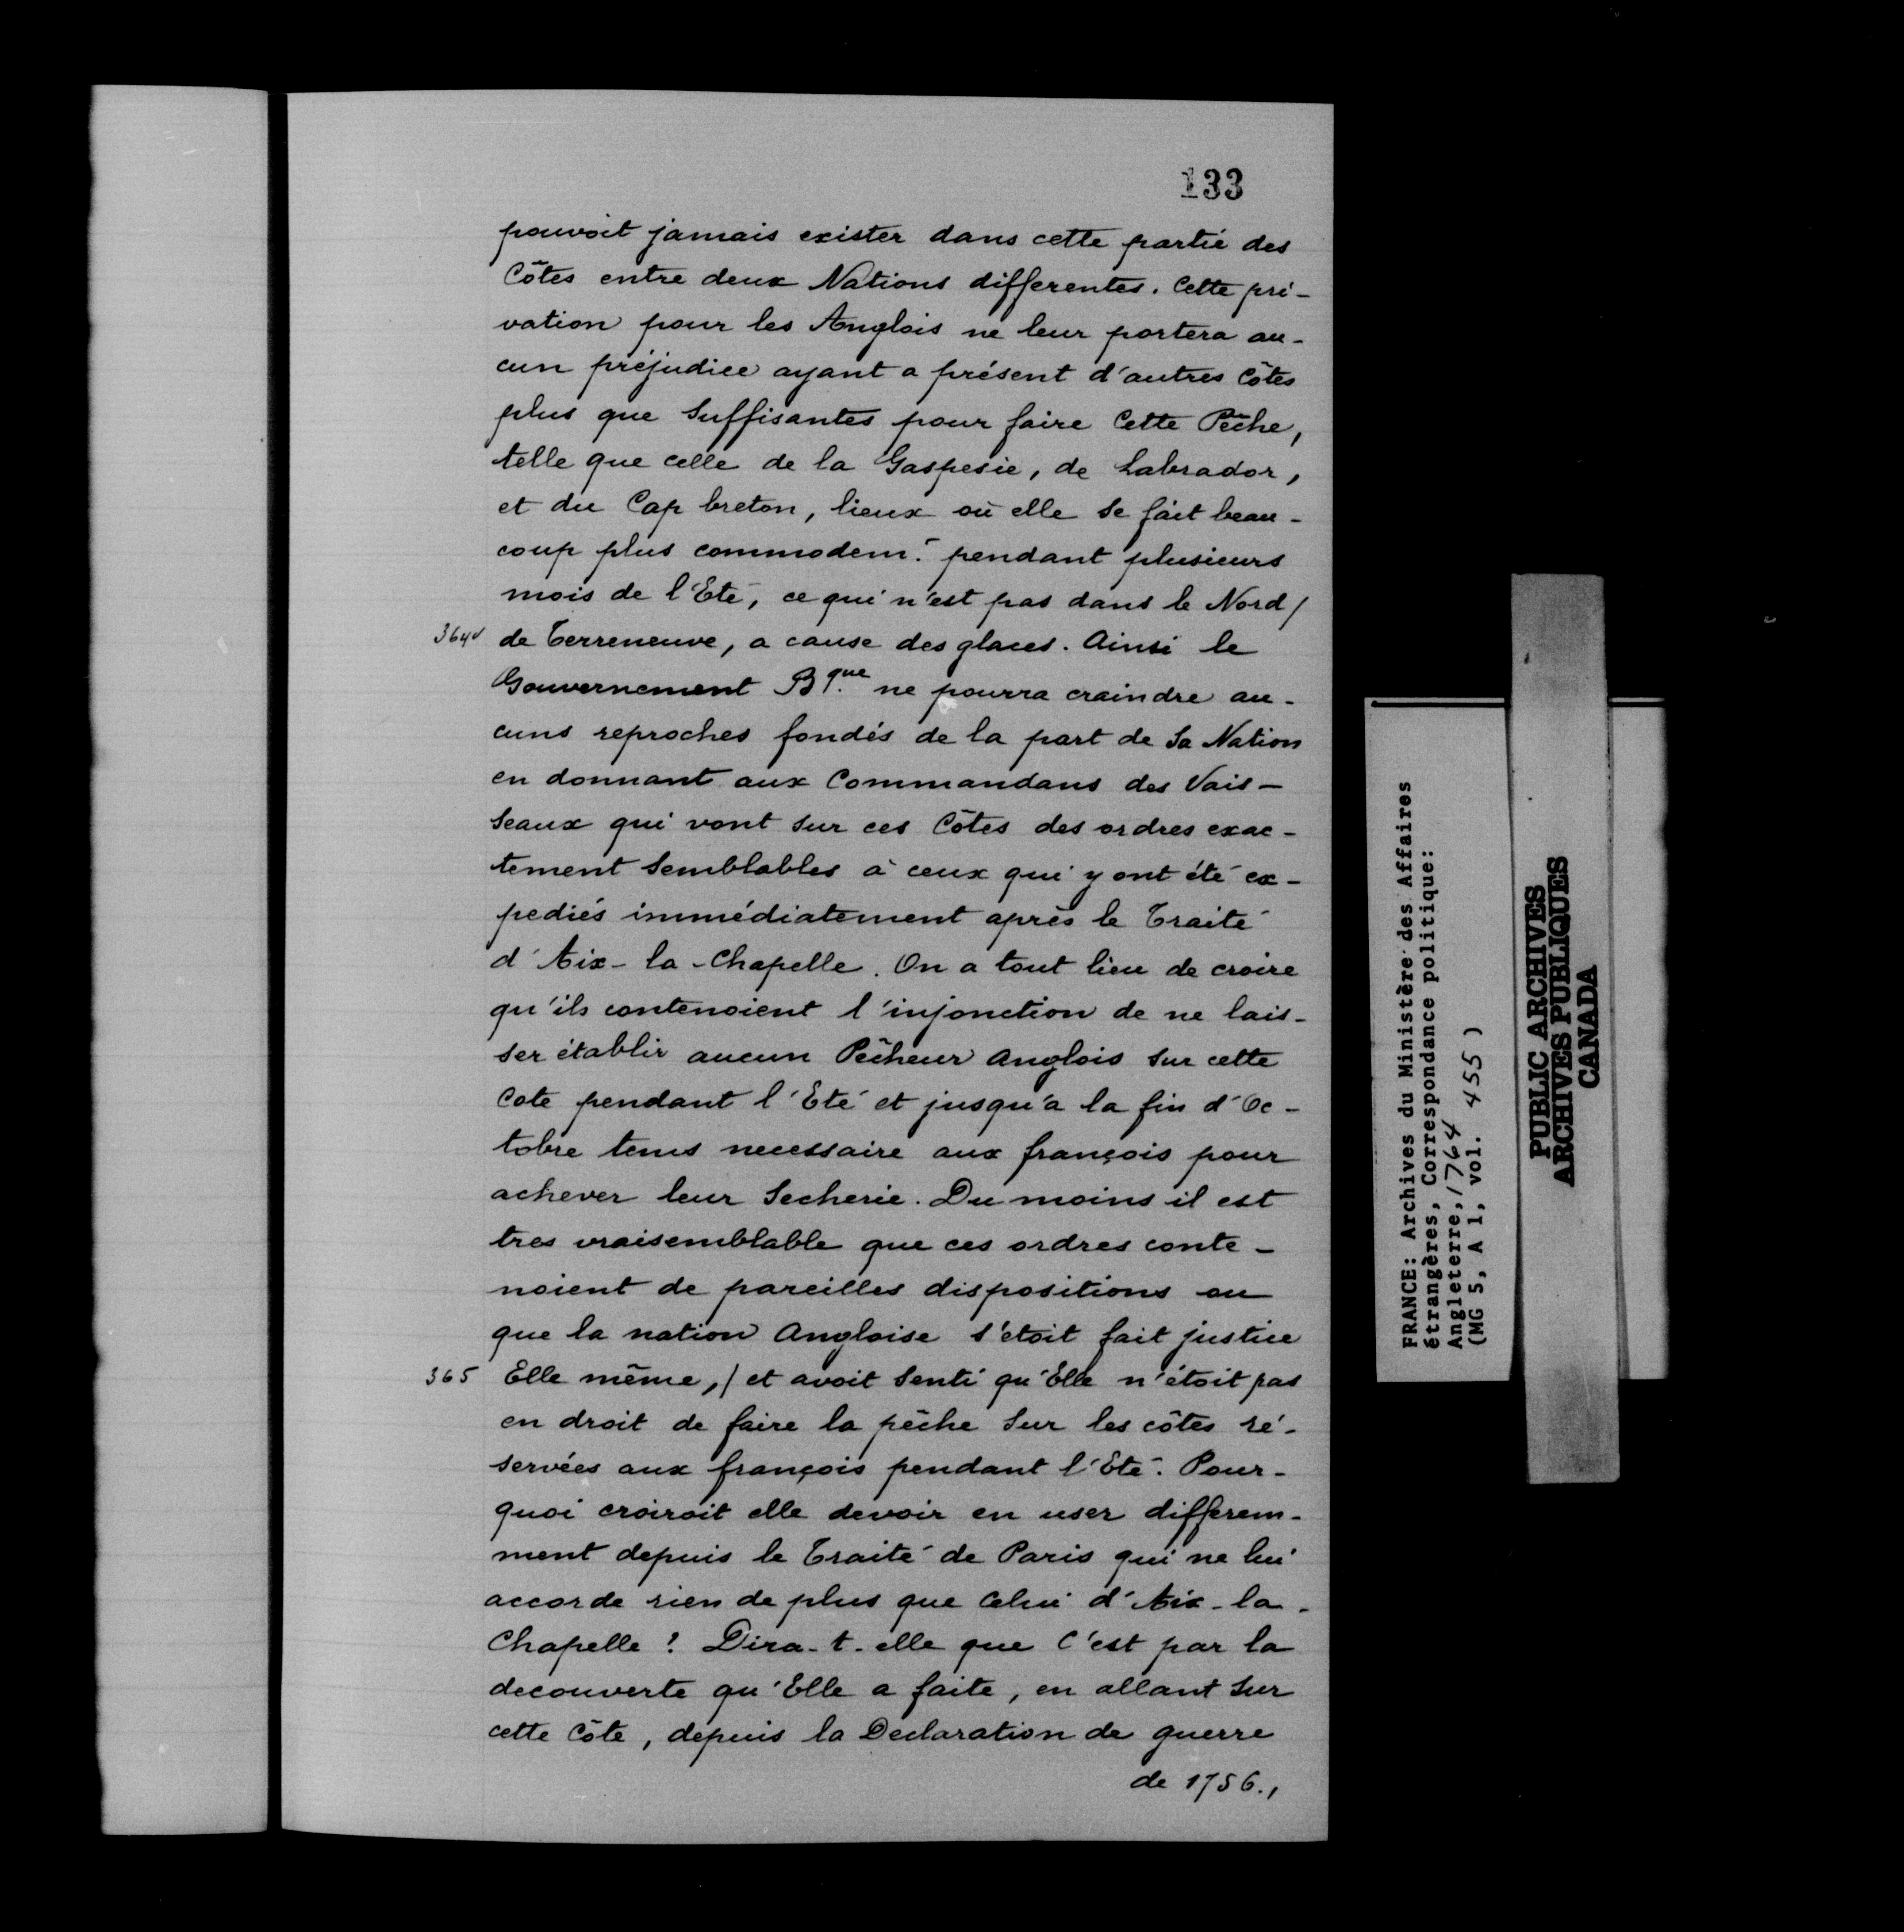 133
pouvoit jamais exister dans cette partie des
Côtes entre deux Nations differentes. Cette pri-
vation pour les Anglois ne leur portera au-
cun préjudice ayant a présent d'autres Côtes
plus que Suffisantes pour faire Cette Pêche,
telle que celle de la Gaspesie, de Labrador,
et du Cap breton, lieux où elle Se fait beau-
coup plus commodemt. pendant plusieurs
mois de l'Eté, ce qui n'est pas dans le Nord/
364v de Terreneuve, a cause des glaces. Ainsi le
Gouvernement Bque. ne pourra craindre au-
cuns reproches fondés de la part de Sa Nation
en donnant aux Commandans des Vais-
Seaux qui vont Sur ces Côtes des ordres exac-
tement Semblables à ceux qui y ont été ex-
pediés immédiatement après le Traité
d'Aix-la-Chapelle. On a tout lieu de croire
qu'ils contenoient l'injonction de ne lais-
Ser établir aucun Pêcheur Anglois Sur cette
Cote pendant l'Eté et jusqu'a la fin d'Oc-
tobre tems necessaire aux françois pour
achever leur Secherie. Du moins il est
tres vraisemblable que ces ordres conte-
noient de pareilles dispositions ou
que la nation Angloise S'etoit fait justice
365 Elle même,/ et avoit Senti qu'Elle n'étoit pas
en droit de faire la pêche Sur les côtes ré-
Servées aux françois pendant l'Eté. Pour-
quoi croiroit elle devoir en user differem-
ment depuis le Traité de Paris qui ne lui
accorde rien de plus que Celui d'Aix-la-
Chapelle? Dira-t-elle que C'est par la
decouverte qu'Elle a faite, en allant Sur
cette Côte, depuis la Declaration de guerre
de 1756.,
FRANCE: Archives du Ministère des Affaires
étrangères, Correspondance politique:
Angleterre, 1764
(MG 5, A 1, vol. 455)
PUBLIC ARCHIVES
ARCHIVES PUBLIQUES
CANADA